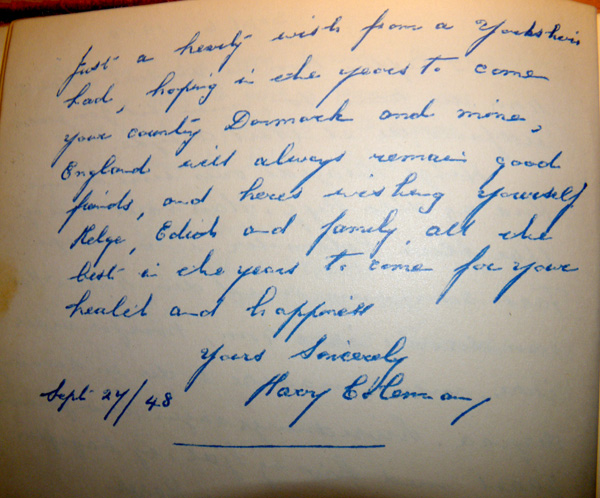 Just a hearty wish from a Yorkshire
lad, hoping in the years to come
your country Danmark and mine,
England will always remain good
friends, and here's wishing yourself
Helge, Edith and family, all the
best in the years to come for your
health and happiness
Yours Sincerely
Sept 27/48 Harry